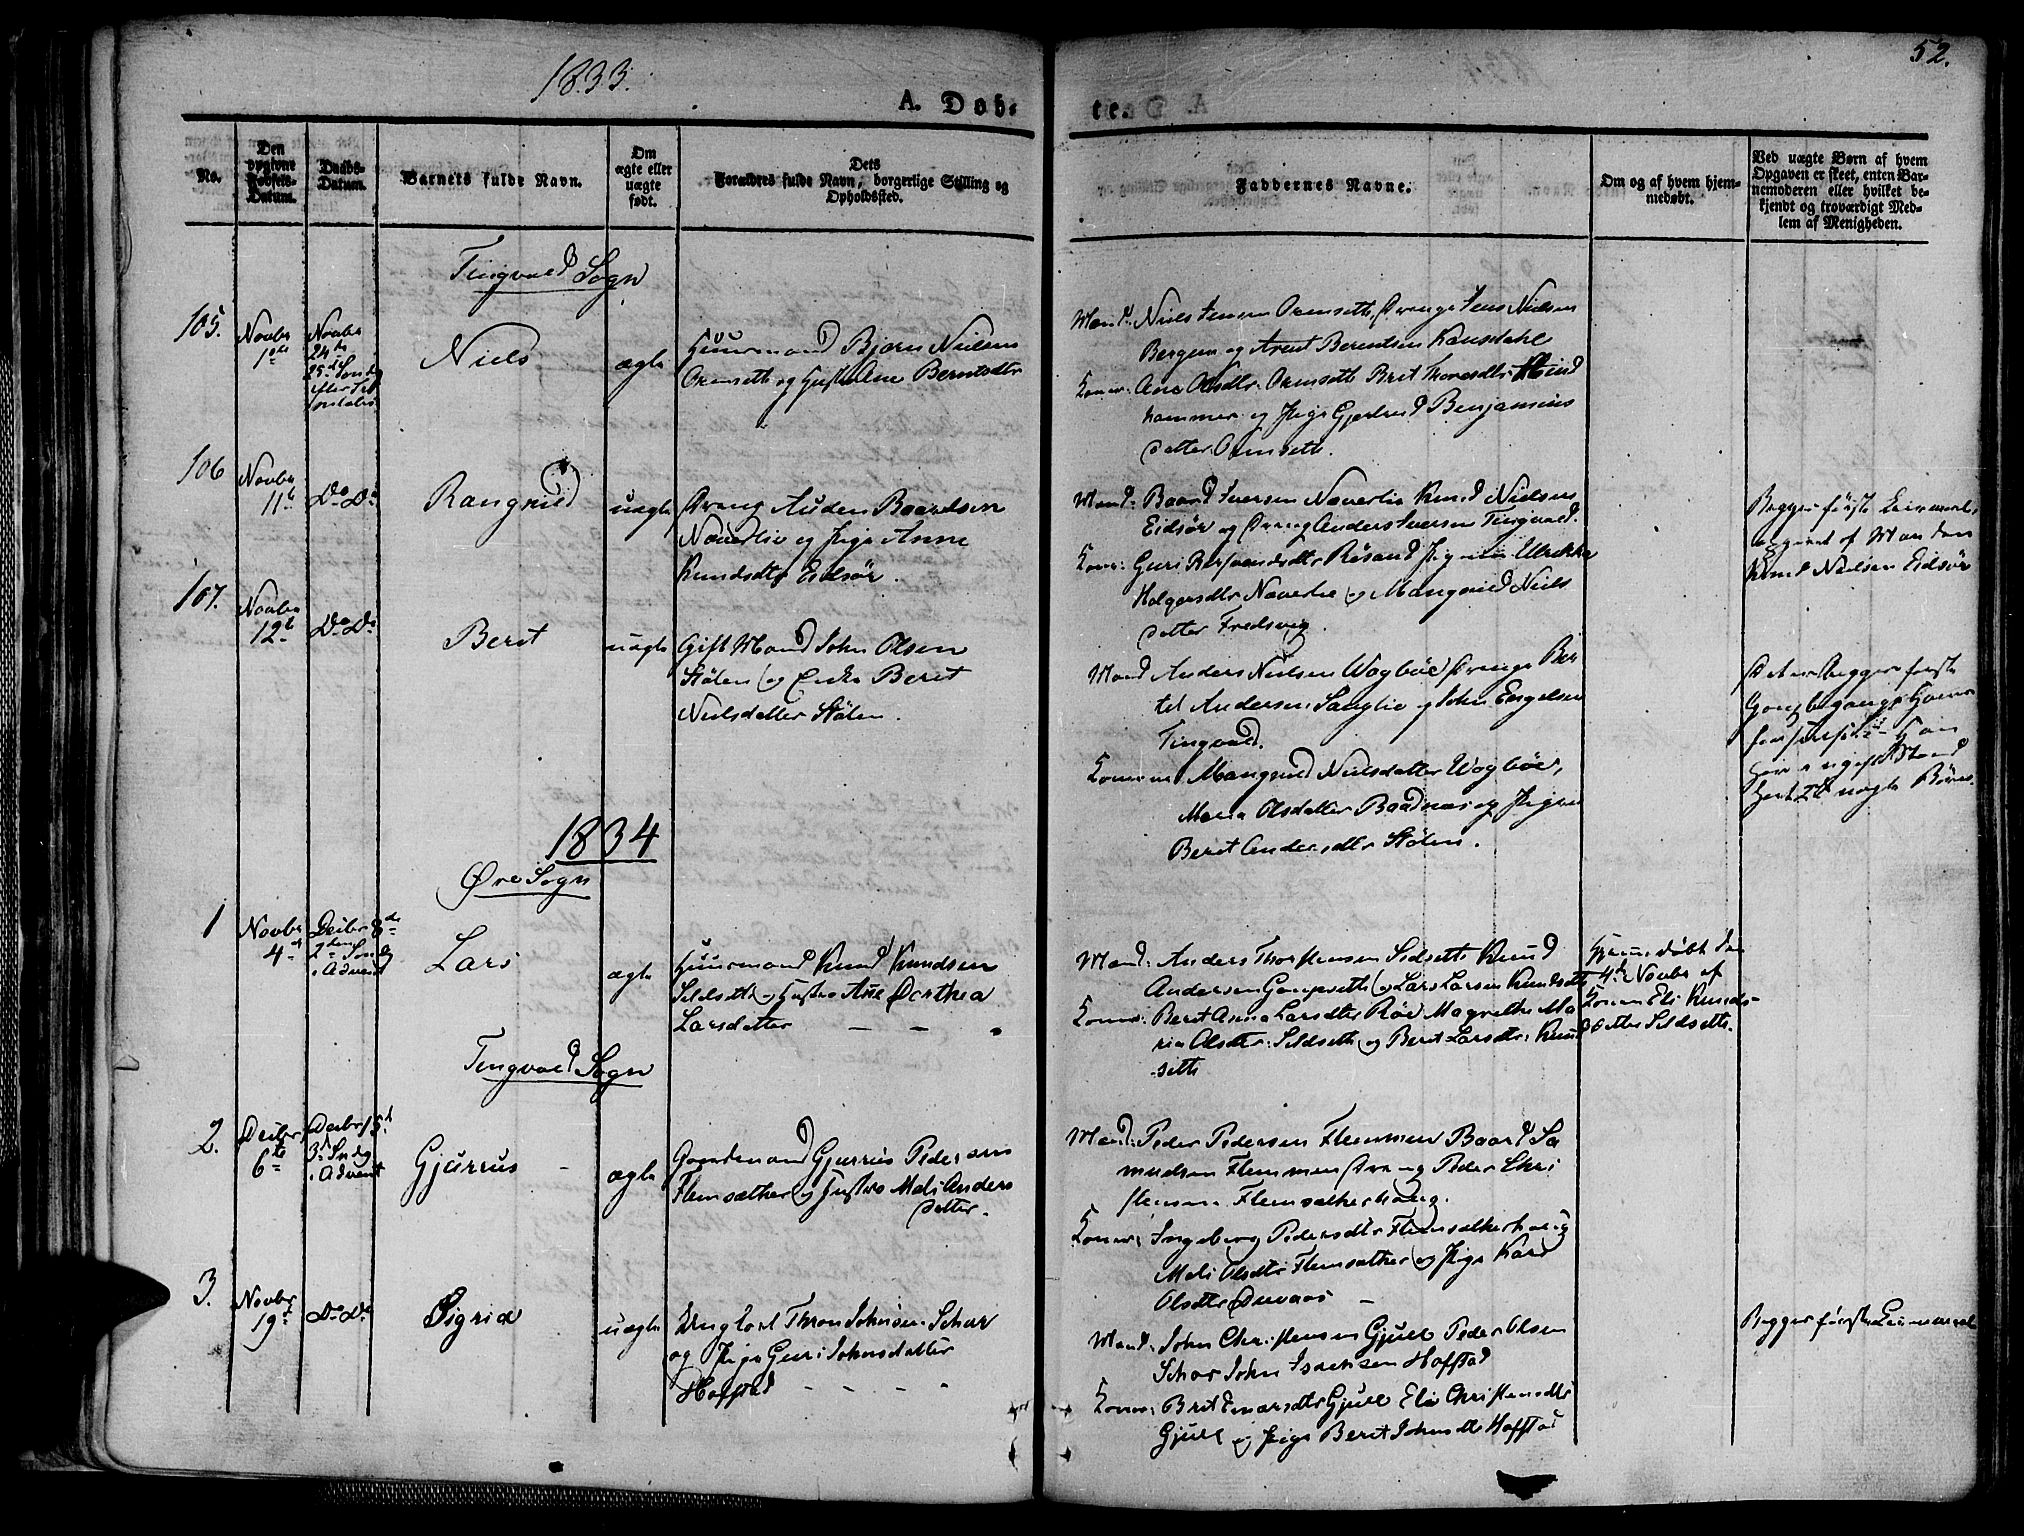 1833.
52.
A. Døb-
te.
No.
Den opgivne Fødsels-Datum.
Daabs-Datum.
Barnets fulde Navn.
Om ægte eller uægte født.
Dets
Forældres fulde Navn, borgerlige Stilling og
Opholdssted.
Faddernes Navne.
Om og af hvem hjem-
medøbt.
Ved uægte Børn af hvem
Opgaven er skeet, enten Bar-
nemoderen eller hvilket be-
kjendt og troværdigt Med-
lem af Menigheden.
Tingvold Sogn
105.
Novbr
1ste
Novbr
24de
25de Søndg
efter
Niels
ægte
Huusmand Bjørn Nielsen
og Hustr Ane Berntsdtr
Mænd: Niels Jensen Drenge Jens Nielsen
Bergem og Arent Berendsen
Koner: Ane Olsdtr. Brit
hammer og Pige Gjertrud Benjamins
datter
106
Novbr
11te
Do Do
Rangnild
uægte
Dreng Auden Baardsen
Naverlie og Pige Anne
Knudsdtr Eidsør.
Mænd: Baard Iversen Naverlie Knud Nielsen
Eidsør og Dreng Anders Iversen Tingvold.
Koner: Guri Røsand Pigerne Ulrikke
Holgersdtr Naverlie og Mangnild Niels
datter Fredsvig.
Begges første Leiermaal,
opgivet af Manden
Knud Nielsen Eidsør
107.
Novbr
12te
Do Do
Berit
uægte
Gift Mand John Olsen
Stølen og Enke Berit
Nielsdatter Stølen.
Mænd Anders Nielsen Wogbøe, Drenge Ber
tel Andersen Sanglie og John Engelsen
Tingvold.
Konerne Mangnild Nielsdatter Wogbøe,
Maria Olsdatter Baadnæs og Pigen
Berit Andersdtr Stølen.
Det er begges første
Han
har i ugift Stand
havt 2de uægte Børn.
1834
Øre Sogn
1
Novbr
4de
Decbr 8de
2den Søndg
i Advent
Lars
ægte
Huusmand Knud Knudsen
Sildsette og Hustro Ane Dorthea
Larsdatter
Mænd: Anders Thorstensen Sildsette Knud
Andersen og Lars Larsen Knudsette
Koner: Berit Anna Larsdtr Røe Magrethe Ma
ria Olsdtr: Sildsette og Berit Larsdtr: Knud
sette
Hjemmedøbt den
4de Novbr af
Konen Eli Knuds-
datter Sildsette.
Tingvold Sogn
2.
Decbr
6te
Decbr 15de
3de Sndg
i Advent
Gjurrus
ægte
Gaardmand Gjurrus Pedersen
Flemsæther og Hustro Mali Anders
datter.
Mænd: Peder Pedersen Flemmen Baard Sa
mudsen Flemmen Dreng Peder Chri
stensen Flemsætherhoug.
Koner: Ingeborg Pedersdtr Flemsætherhoug
Mali Olsdtr Flemsæther og Pige Kari
Olsdtr
3.
Novbr
19de
Do Do
Sigrid
uægte
Ungkarl Thron Johnsen Schar
og Pige Guri Johnsdatter
Hafstad
Mænd: John Christensen Gjull Peder Olsen
Schar John Hafstad
Koner: Brit Gjull Eli Christensdtr
Gjull og Pige Berit Johnsdtr Hafstad
Begges første Leiermaal